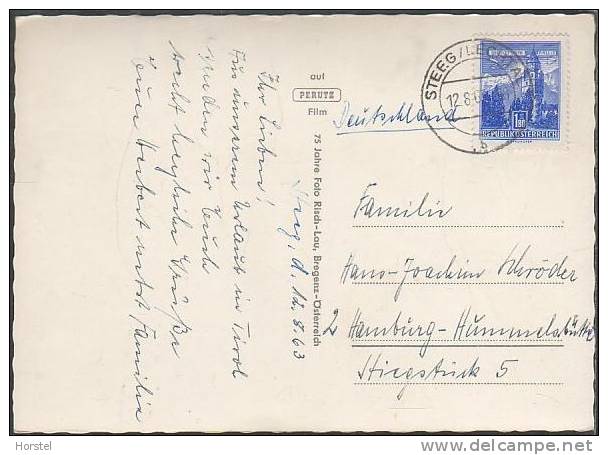 Steeg, d. 12.8.63
Ihr Lieben!
Aus unserem Urlaub in Tirol
senden wir Euch
recht herzliche Grüße
Euer Herbert nebst Familie
auf
PERUTZ
Film
75 Jahre Foto Risch-Lau, Bregenz-Österreich
Deutschland
STEEG/LECHTAL
12.8.6
b
1.80
REPUBLIK ÖSTERREICH
Familie
Hans-Joachim Schröder
2 Hamburg-Hummelsbüttel
Stiegstück 5
Horstel
www.delcampe.net